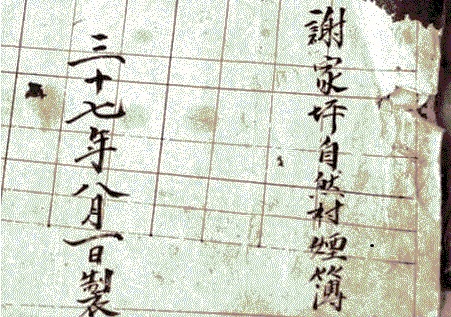 謝家坪自然村煙簿
三十七年八月一日製